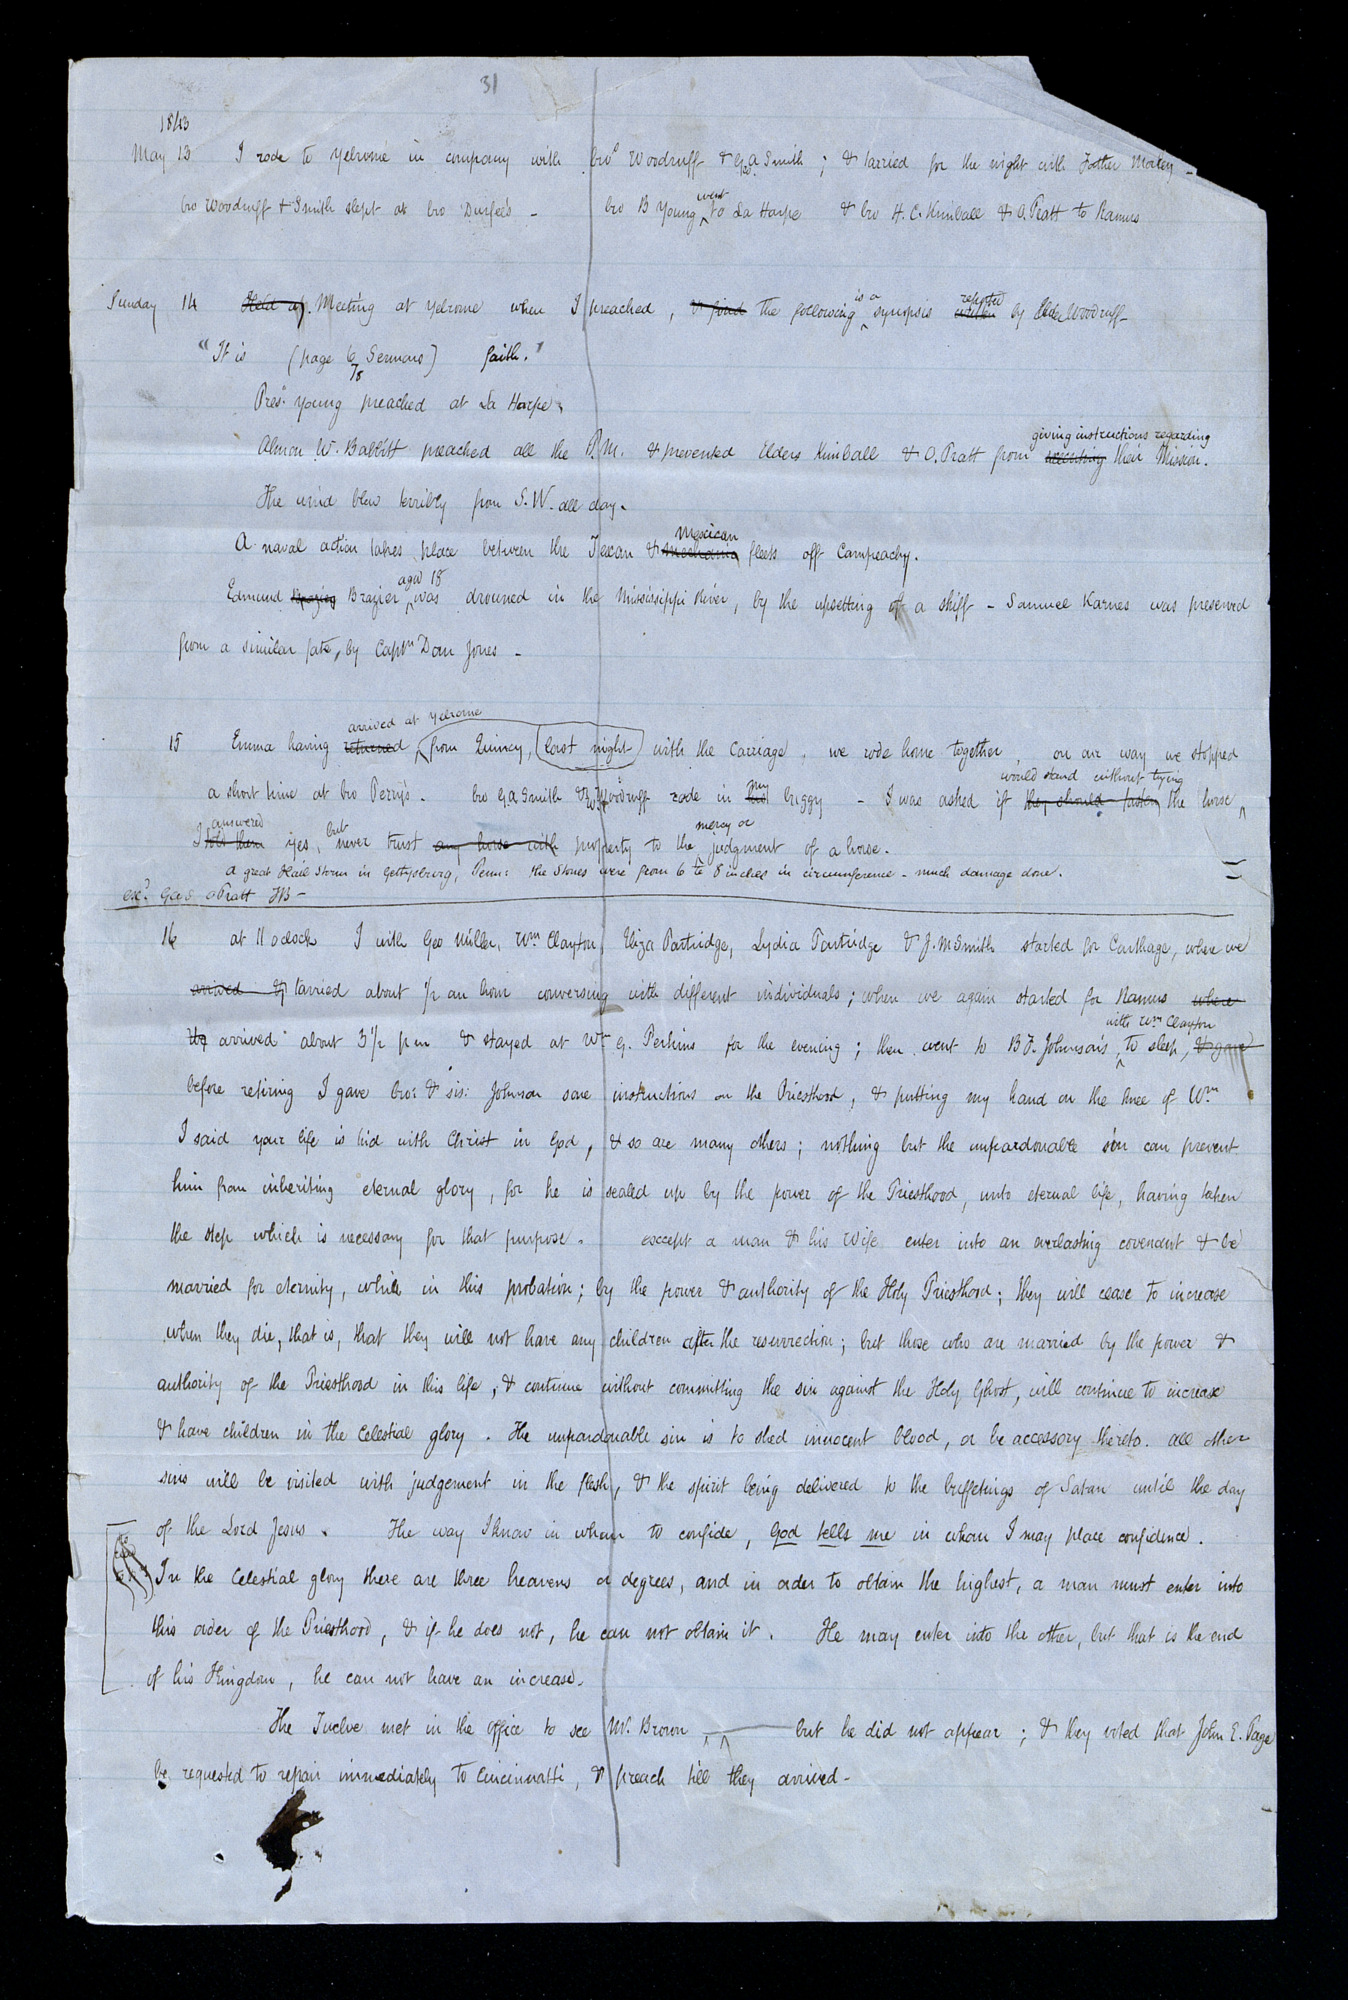 31
1843
May 13 I rode to Yelrome in company with bro.s Woodruff & Geo. A. Smith; & tarried for the night with Father Morley -
bro Woodruff & Smith slept at bro Durfee's - bro B Young went to La Harpe & bro H. C. Kimball & O. Pratt to Ramus
Sunday 14 Held a Meeting at Yelrome when I preached, & find the following is a synopsis written reported by Elder Woodruff-
"It is (page 6 7/8 Sermons) faith."
Pres.t Young preached at La Harpe,
Almon W. Babbitt preached all the P.M. & prevented Elders Kimball & O. Pratt from giving instructions regarding their Mission.
The wind blew terribly from S.W. all day.
A naval action takes place between the Texan & Mechania Mexican fleets off Campeachy.
Edmund Brazier Brazier aged 18 was drowned in the Mississippi River, by the upsetting of a skiff - Samuel Karnes was preserved
from a similar fate, by Captn Dan Jones -
15 Emma having returned arrived at Yelrome from Quincy, last night with the carriage, we rode home together, on our way we stopped
a short time at bro Perry's. bro G A Smith & W. Woodruff rode in his my buggy - I was asked if they should fasten the horse would stand without tying
I told them answered yes, but never trust any horse with property to the mercy or judgment of a horse.
a great Hail Storm in Gettysburg, Penn: the Stones were from 6 to 8 inches in circumference - much damage done.
ex.d GAS O Pratt TB -
16 at 11 o clock I with Geo Miller, Wm Clayton, Eliza Partridge, Lydia Partridge & J. M Smith started for Carthage, where we
arrived & tarried about 1/2 an hour conversing with different individuals; when we again started for Ramus where
We arrived about 3 1/2 pm & stayed at Wm G. Perkins for the evening; then went to B F. Johnson's with Wm Clayton to sleep, & gave
before retiring I gave bro: & sis: Johnson some instructions on the Priesthood, & putting my hand on the knee of Wm
I said your life is hid with Christ in God, & so are many others; nothing but the unpardonable sin can prevent
him from inheriting eternal glory, for he is sealed up by the power of the Priesthood, unto eternal life, having taken
the step which is necessary for that purpose. except a man & his wife enter into an everlasting covenant & be
married for eternity, while in this probation; by the power & authority of the Holy Priesthood; they will cease to increase
when they die, that is, that they will not have any children after the resurrection; but those who are married by the power &
authority of the Priesthood in this life, & continue without committing the sin against the Holy Ghost, will continue to increase
& have children in the celestial glory. The unpardonable sin is to shed innocent blood, or be accessory thereto. all other
sins will be visited with judgement in the flesh, & the spirit being delivered to the buffetings of Satan until the day
of the Lord Jesus. The way I know in whom to confide, God tells me in whom I may place confidence.
In the celestial glory there are three heavens or degrees, and in order to obtain the highest, a man must enter into
this order of the Priesthood, & if he does not, he can not obtain it. He may enter into the other, but that is the end
of his Kingdom, he can not have an increase.
The Twelve met in the office to see Mr. Brown but he did not appear; & they voted that John E. Page
be requested to repair immediately to Cincinnatti, & preach till they arrived -